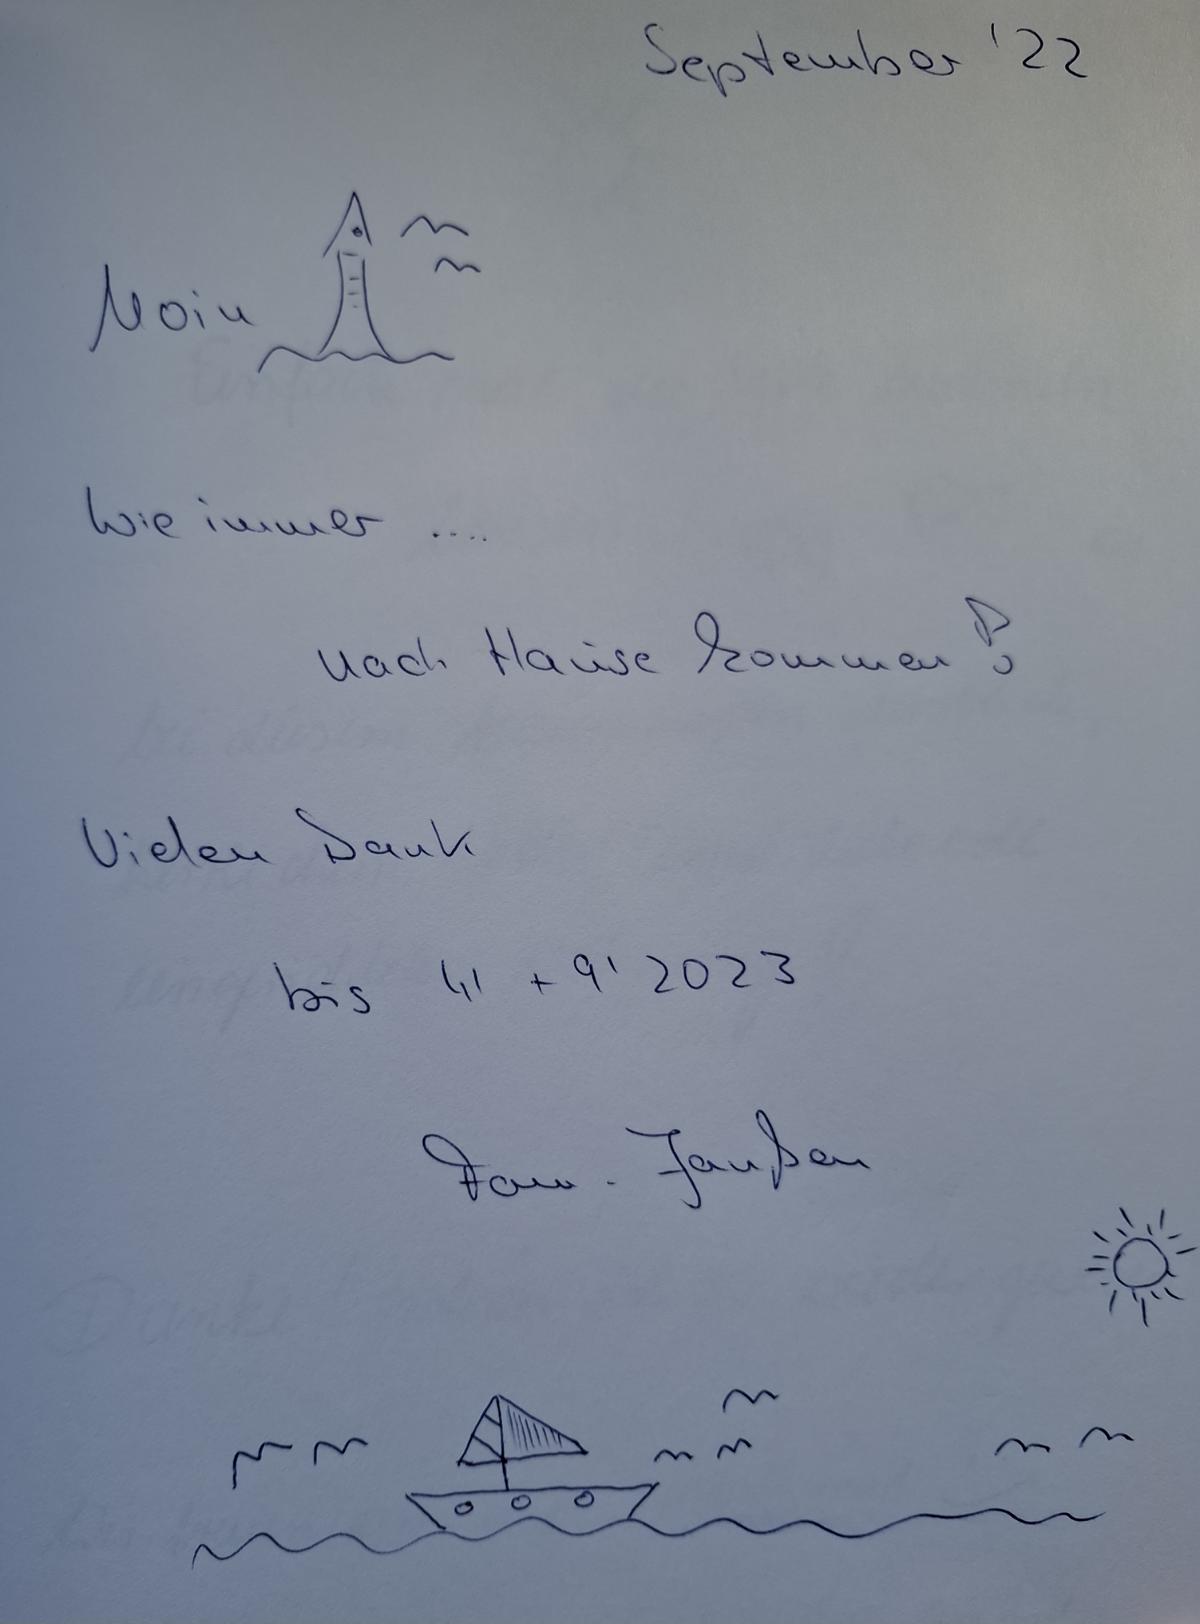 September '22
Moin
Wie immer ....
nach Hause kommen!
Vielen Dank
bis 4' + 9' 2023
Fam. Janßen